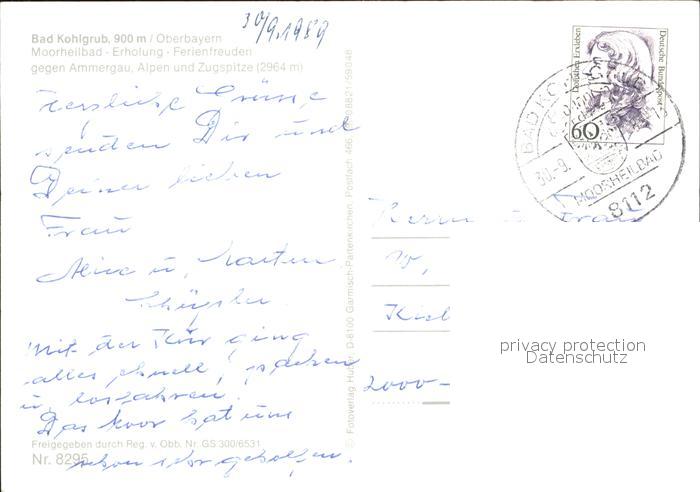 30/9.1989
Bad Kohlgrub, 900 m / Oberbayern
Moorheilbad - Erholung - Ferienfreuden
gegen Ammergau, Alpen und Zugspitze (2964 m)
Herzliche Grüsse
senden Dir und
Deiner lieben
Frau
u,
Mit der Kur ging
alles schnell, packen
u. losfahren.
Das Moor hat uns
schon sehr geholfen.
Freigegeben durch Reg. v. Obb. Nr. GS 300/6531
Nr. 8295
© Fotoverlag Huber, D-8100 Garmisch-Partenkirchen, Postfach 466, 08821/59048
Deutschen Erleben
Deutsche Bundespost
60
BAD KO
30.-9.
MOORHEILBAD
8112
Herrn u Frau
Kiel
2000-
privacy protection
Datenschutz